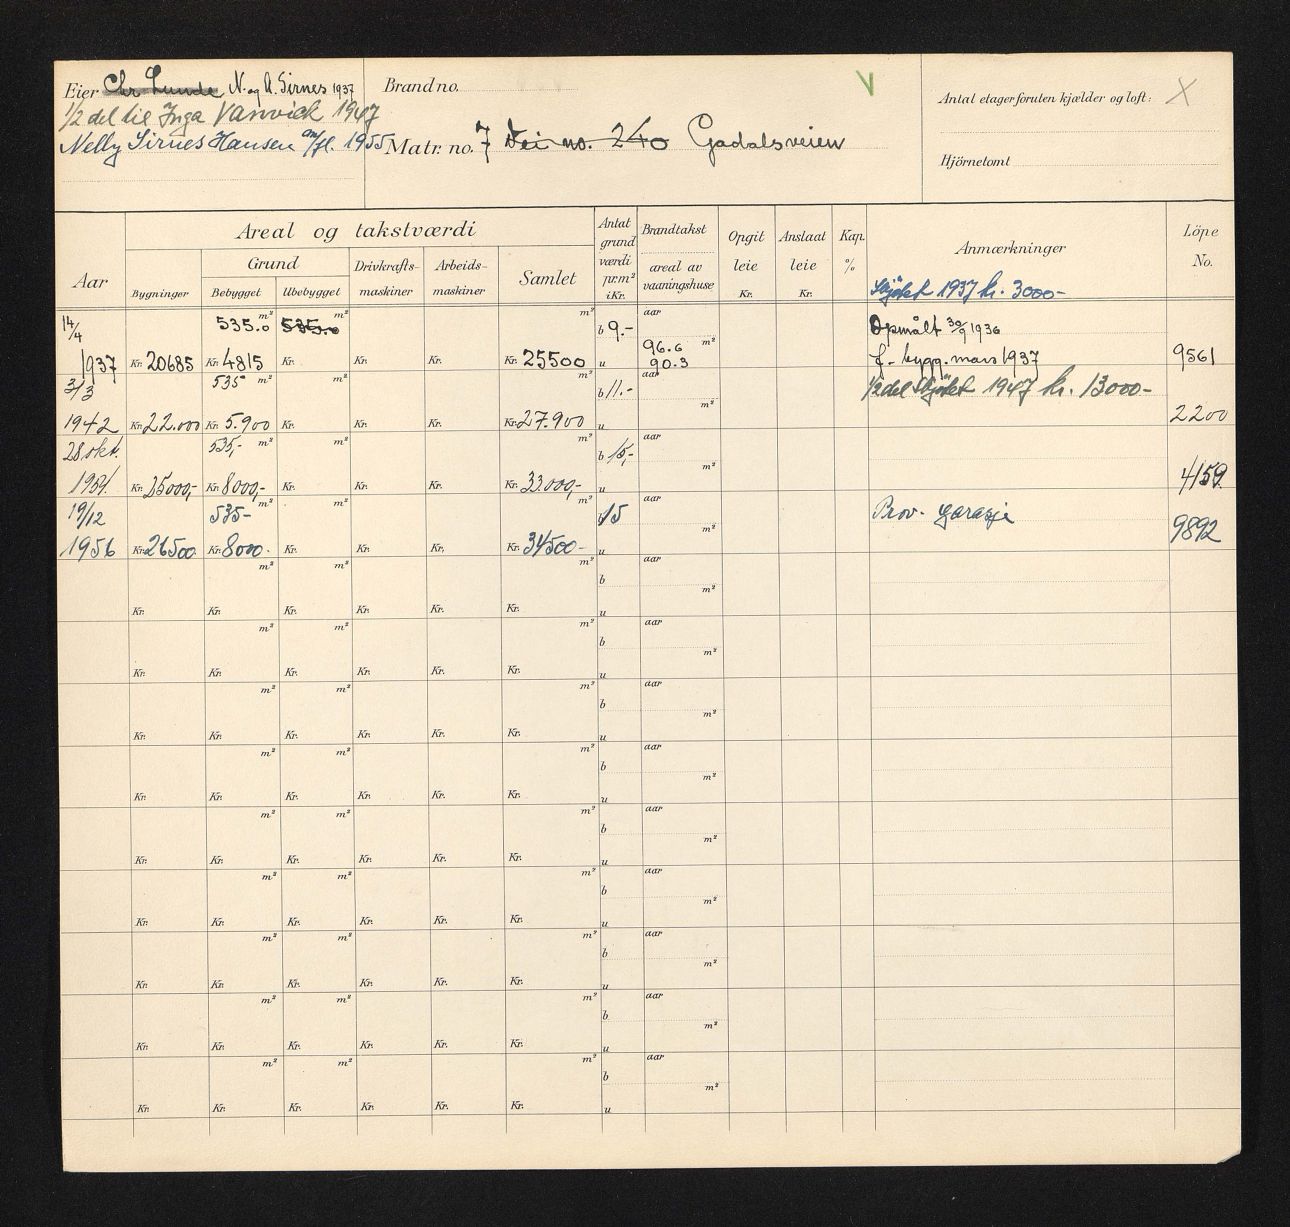 Eier Chr Lunde N. og A. Sirnes 1937
1/2 del til Inga Vanvick 1947
Nelly Sirnes Hansen 1955
Brand no.
Matr. no. 7 Vei no. 240 Gadalsveien
V
Antal etager foruten kjælder og loft: X
Hjörnetomt
Areal og takstværdi
Grund
Aar
Bygninger
Bebygget
Ubebygget
Drivkrafts-
maskiner
Arbeids-
maskiner
Samlet
Antat
grund
værdi
pr.m²
i Kr.
Brandtakst
areal av
vaaningshuse
Opgit
leie
Kr.
Anslaat
leie
Kr.
Kap.
%
Anmærkninger
Skjötet 1937 kr. 3000-
Löpe
No.
14/4 535.0 m² 535.0 m² m² b 9.- aar Opmålt 30/9 1936
96.6 m²
1937 Kr. 20685 Kr. 4815 Kr. Kr. Kr. Kr. 25500 u 90.3 f. bygg. mars 1937 9561
3/3 535 m² m² m² b 11.- aar 1/2 del Skjötet 1947 kr. 13000-
m²
1942 Kr. 22.000 Kr. 5.900 Kr. Kr. Kr. Kr. 27.900 u 2200
28 okt. 535,- m² m² m² b 15,- aar
m²
1951. Kr. 25000,- Kr. 8000,- Kr. Kr. Kr. Kr. 33.000,- u 4159.
19/12 535- m² m² m² b 15 aar Prov. garasje
m²
1956 Kr. 26500 Kr. 8000- Kr. Kr. Kr. Kr. 34500- u 9892
m² m² m² b aar
m²
Kr. Kr. Kr. Kr. Kr. Kr. u
m² m² m² b aar
m²
Kr. Kr. Kr. Kr. Kr. Kr. u
m² m² m² b aar
m²
Kr. Kr. Kr. Kr. Kr. Kr. u
m² m² m² b aar
m²
Kr. Kr. Kr. Kr. Kr. Kr. u
m² m² m² b aar
m²
Kr. Kr. Kr. Kr. Kr. Kr. u
m² m² m² b aar
m²
Kr. Kr. Kr. Kr. Kr. Kr. u
m² m² m² b aar
m²
Kr. Kr. Kr. Kr. Kr. Kr. u
m² m² m² b aar
m²
Kr. Kr. Kr. Kr. Kr. Kr. u
m² m² m² b aar
m²
Kr. Kr. Kr. Kr. Kr. Kr. u